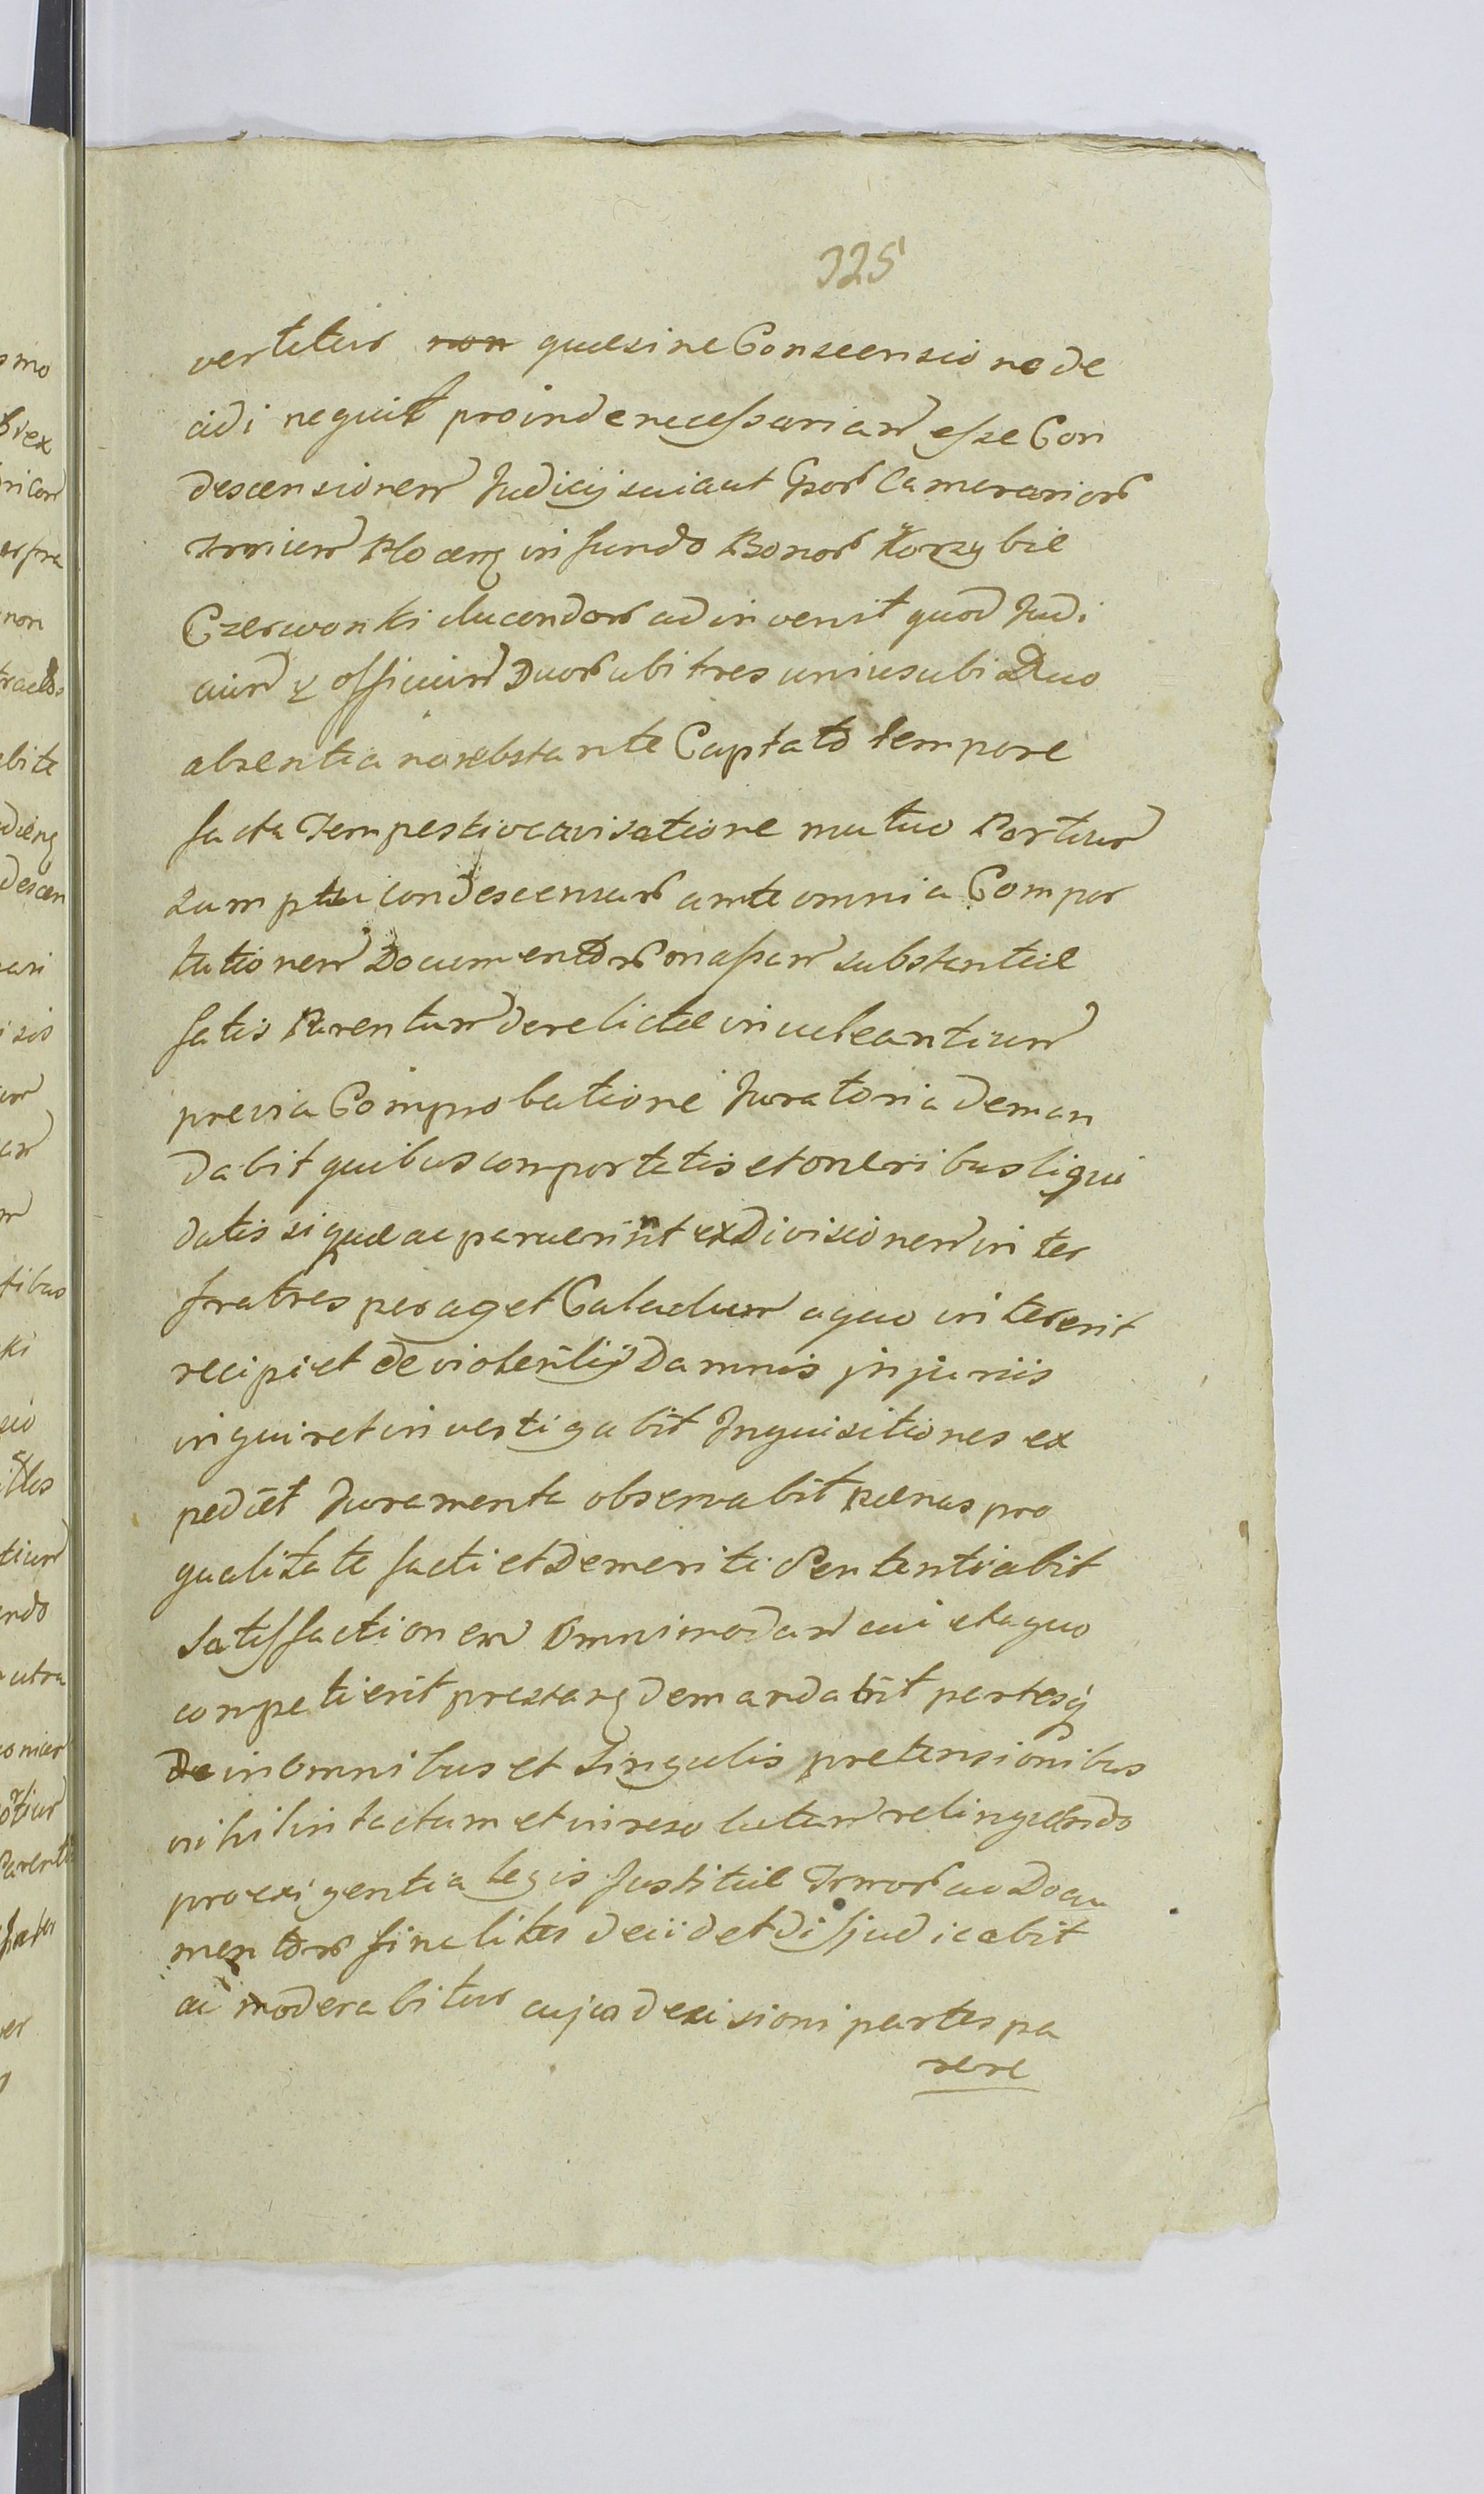 325
vertitur non quæ sine Conscensione de
cidi nequit proinde necessariam esse Con
descensionem Judicij sui aut Gsor Camerarior
Trrium Plocen in fundo Bonor Korzybie
Czerwonki ducendor adinvenit quod Judi
cium & officium Duor ubi tres unius ubi Duo
absentia non obstante Captato tempore
facta Tempestive avisatione mutuo Partium
sumptui condescensur ante omnia Compor
tationem Documentor massam substantiæ
fatis Parentum derelictæ inculcantium
previa Comprobatione Juratoria deman
dabit quibus comportatis et oneribus liqui
datis si quæ apparuerint exdivisionem inter
fratres peraget Calculum a quo intererit
recipiet de violentijs Damnis injuriis
inquiret investigabit Inquisitiones ex
pediet Juramenta observabit pænas pro
qualitate facti et Demeriti Sententiabit
Satisfactionem Omnimodam cui et a quo
competierit prestan demandabit partesq
De in omnibus et Singulis pretensionibus
nihil intactum et inresolutum relinquendo
pro exigentia legis Justitiæ Trror ac Docu
mentor finaliter decidet disjudicabit
ac moderabitur cujus decisioni partes pa
rere